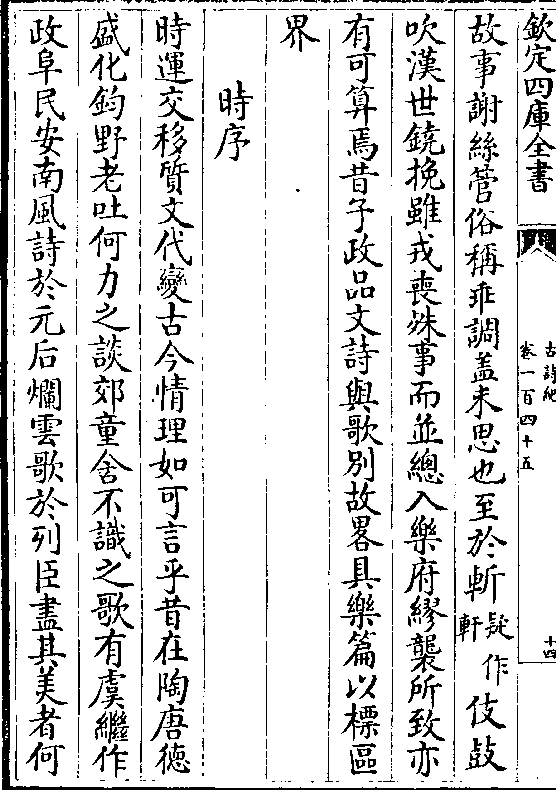 欽定四庫全書
古詩紀
卷一百四十五
十四
故事謝絲管俗稱乖調盖未思也至於斬疑作軒伎鼓
吹漢世鐃挽雖戎喪殊事而並總入樂府繆襲所致亦
有可算焉昔子政品文詩與歌別故畧具樂篇以標區
界
時序
時運交移質文代變古今情理如可言乎昔在陶唐德
盛化鈞野老吐何力之談郊童含不識之歌有虞繼作
政阜民安南風詩於元后爛雲歌於列臣盡其美者何